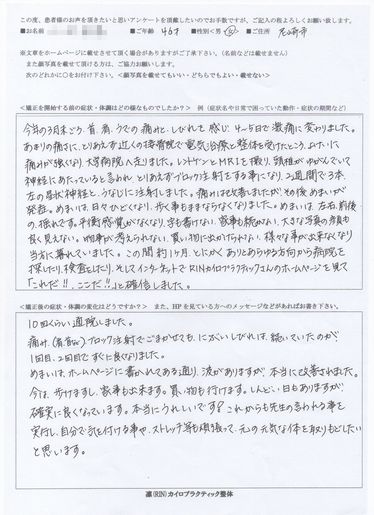 この度、患者様のお声を頂きたいと思いアンケートを頂戴したいのでお手数ですが、ご記入の程よろしくお願い致します。
■お名前 ■ご年齢 46才 ■性別＜男・女＞ ■ご住所 尼崎市
※文章をホームページに載せさせて頂く場合がありますがご了承下さい。（名前などは載せません）
また顔写真を載せて頂ける方は、ご協力お願いします。
次のどれかに○をお付け下さい。＜顔写真を載せてもいい・どちらでもよい・載せない＞
＜矯正を開始する前の症状・体調はどの様なものでしたか？＞ 例（症状名や日常で困っていた動作・症状の期間など）
今年の3月末ごろ、首、肩、うでの痛みと、しびれを感じ、4～5日で激痛に変わりました。
あまりの痛さに、とりあえず近くの接骨院で電気治療と整体を受けたところ、よけいに
痛みが強くなり、大学病院へ走りました。レントゲンとMRIを撮り、頚椎がゆがんでいて
神経にあたっていると言われ、とりあえずブロック注射をする事になり、2週間で3本、
左の星状神経と、うなじに注射しました。痛みは改善しましたが、その後めまいが
発症。めまいは、日々ひどくなり、歩く事もままならなくなりました。めまいは、左右、前後
の揺れです。平衡感覚がなくなり、字も書けない、家事も続かない、大きな写真の顔も
良く見えない。物事が考えられない、買い物に出かけられない、様々な事が出来なくなり
当方に暮れていました。この間約1ヶ月、とにかくありとあらゆる方向から病院を
探したり、検査をしたり、そしてインターネットでRINカイロプラクティックさんのホームページを見て
「これだ!!、ここだ!!」と確信しました。
＜矯正後の症状・体調の変化はどうですか？＞ また、HPを見ている方へのメッセージなどがあればお書き下さい。
10回くらい通院しました。
痛み、(首、肩など)ブロック注射でごまかせても、にぶいしびれは、続いていたのが、
1回目、2回目ですぐに良くなりました。
めまいは、ホームページに書かれてある通り、波がありますが、本当に改善されました。
今は、歩けますし、家事も出来ます。買い物も行けます。しんどい日もありますが
確実に良くなっています。本当にうれしいです！これからも先生の言われる事を
実行し、自分で気を付ける事や、ストレッチ等も頑張って、元の元気な体を取りもどしたい
と思います。
凛(RIN)カイロプラクティック整体